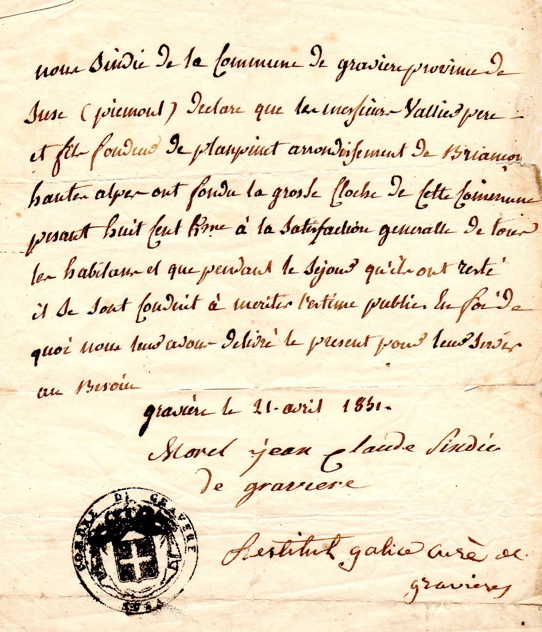 nous Sindic de la Commune de graviere province de
Suse (piemont) Declare que les messieurs Vallier pere
et fils fondeurs de planpinet arrondissement de Briancon
hautes alpes ont fondu la grosse Cloche de Cette Commune
pesant huit Cent à la Satisfaction generalle de tous
les habitans et que pendant le Séjour qu'ils ont resté
il Se Sont Conduit à meriter l'estime public. En foi de
quoi nous leur avons delivré le present pour leur Servir
au Besoin
gravière le 21 avril 1831.
Morel jean Claude Sindic
de graviere
Restitut galice curè de
gravieres
COMUNE DI GRAVERE